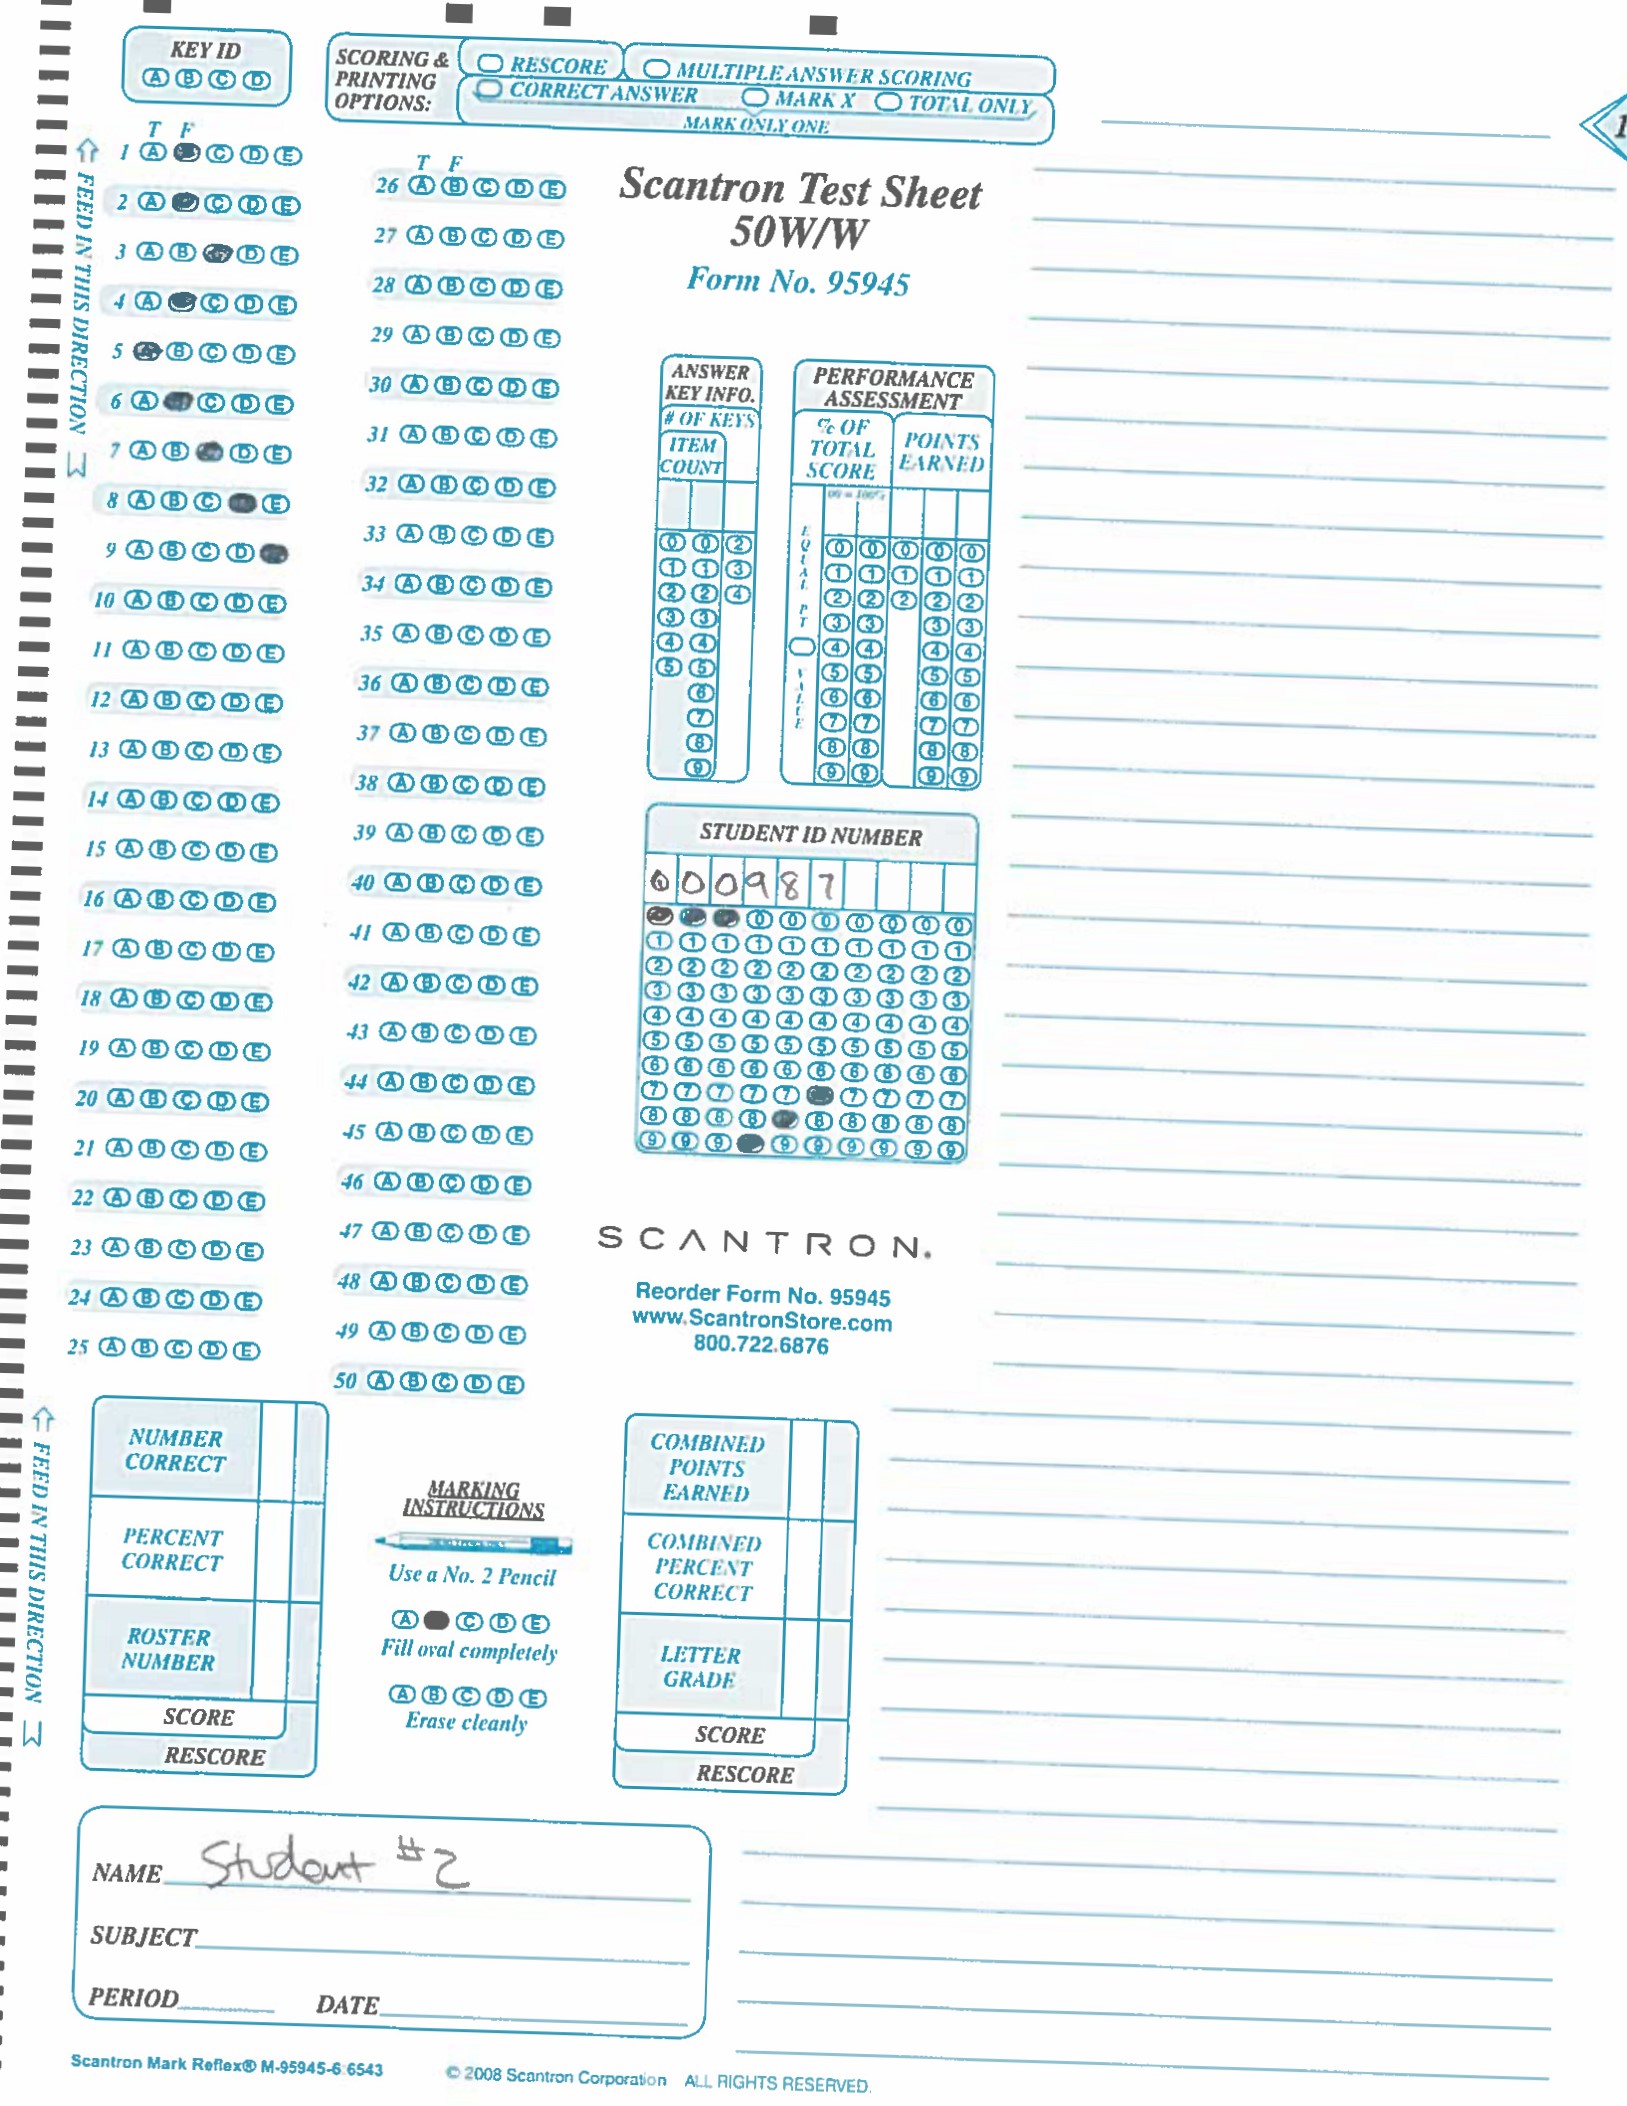 KEY ID
A B C D
SCORING & PRINTING OPTIONS:
RESCORE MULTIPLE ANSWER SCORING
CORRECT ANSWER MARK X TOTAL ONLY
MARK ONLY ONE
1
FEED IN THIS DIRECTION
T F
1 A C D E
2 A C D E
3 A B D E
4 A C D E
5 B C D E
6 A C D E
7 A B D E
8 A B C E
9 A B C D
10 A B C D E
11 A B C D E
12 A B C D E
13 A B C D E
14 A B C D E
15 A B C D E
16 A B C D E
17 A B C D E
18 A B C D E
19 A B C D E
20 A B C D E
21 A B C D E
22 A B C D E
23 A B C D E
24 A B C D E
25 A B C D E
T F
26 A B C D E
27 A B C D E
28 A B C D E
29 A B C D E
30 A B C D E
31 A B C D E
32 A B C D E
33 A B C D E
34 A B C D E
35 A B C D E
36 A B C D E
37 A B C D E
38 A B C D E
39 A B C D E
40 A B C D E
41 A B C D E
42 A B C D E
43 A B C D E
44 A B C D E
45 A B C D E
46 A B C D E
47 A B C D E
48 A B C D E
49 A B C D E
50 A B C D E
Scantron Test Sheet
50W/W
Form No. 95945
ANSWER
KEY INFO.
# OF KEYS
ITEM
COUNT
0 0 2
1 1 3
2 2 4
3 3
4 4
5 5
6
7
8
9
PERFORMANCE
ASSESSMENT
% OF
TOTAL
SCORE
POINTS
EARNED
00 = 100%
EQUAL PT VALUE
0 0 0 0 0
1 1 1 1 1
2 2 2 2 2
3 3 3 3
4 4 4 4
5 5 5 5
6 6 6 6
7 7 7 7
8 8 8 8
9 9 9 9
STUDENT ID NUMBER
000987
0 0 0 0 0 0 0
1 1 1 1 1 1 1 1 1 1
2 2 2 2 2 2 2 2 2 2
3 3 3 3 3 3 3 3 3 3
4 4 4 4 4 4 4 4 4 4
5 5 5 5 5 5 5 5 5 5
6 6 6 6 6 6 6 6 6 6
7 7 7 7 7 7 7 7 7
8 8 8 8 8 8 8 8 8
9 9 9 9 9 9 9 9 9
SCANTRON.
Reorder Form No. 95945
www.ScantronStore.com
800.722.6876
FEED IN THIS DIRECTION
NUMBER
CORRECT
PERCENT
CORRECT
ROSTER
NUMBER
SCORE
RESCORE
MARKING
INSTRUCTIONS
Use a No. 2 Pencil
A C D E
Fill oval completely
A B C D E
Erase cleanly
COMBINED
POINTS
EARNED
COMBINED
PERCENT
CORRECT
LETTER
GRADE
SCORE
RESCORE
NAME Student #2
SUBJECT
PERIOD DATE
Scantron Mark Reflex® M-95945-6:6543 © 2008 Scantron Corporation ALL RIGHTS RESERVED.